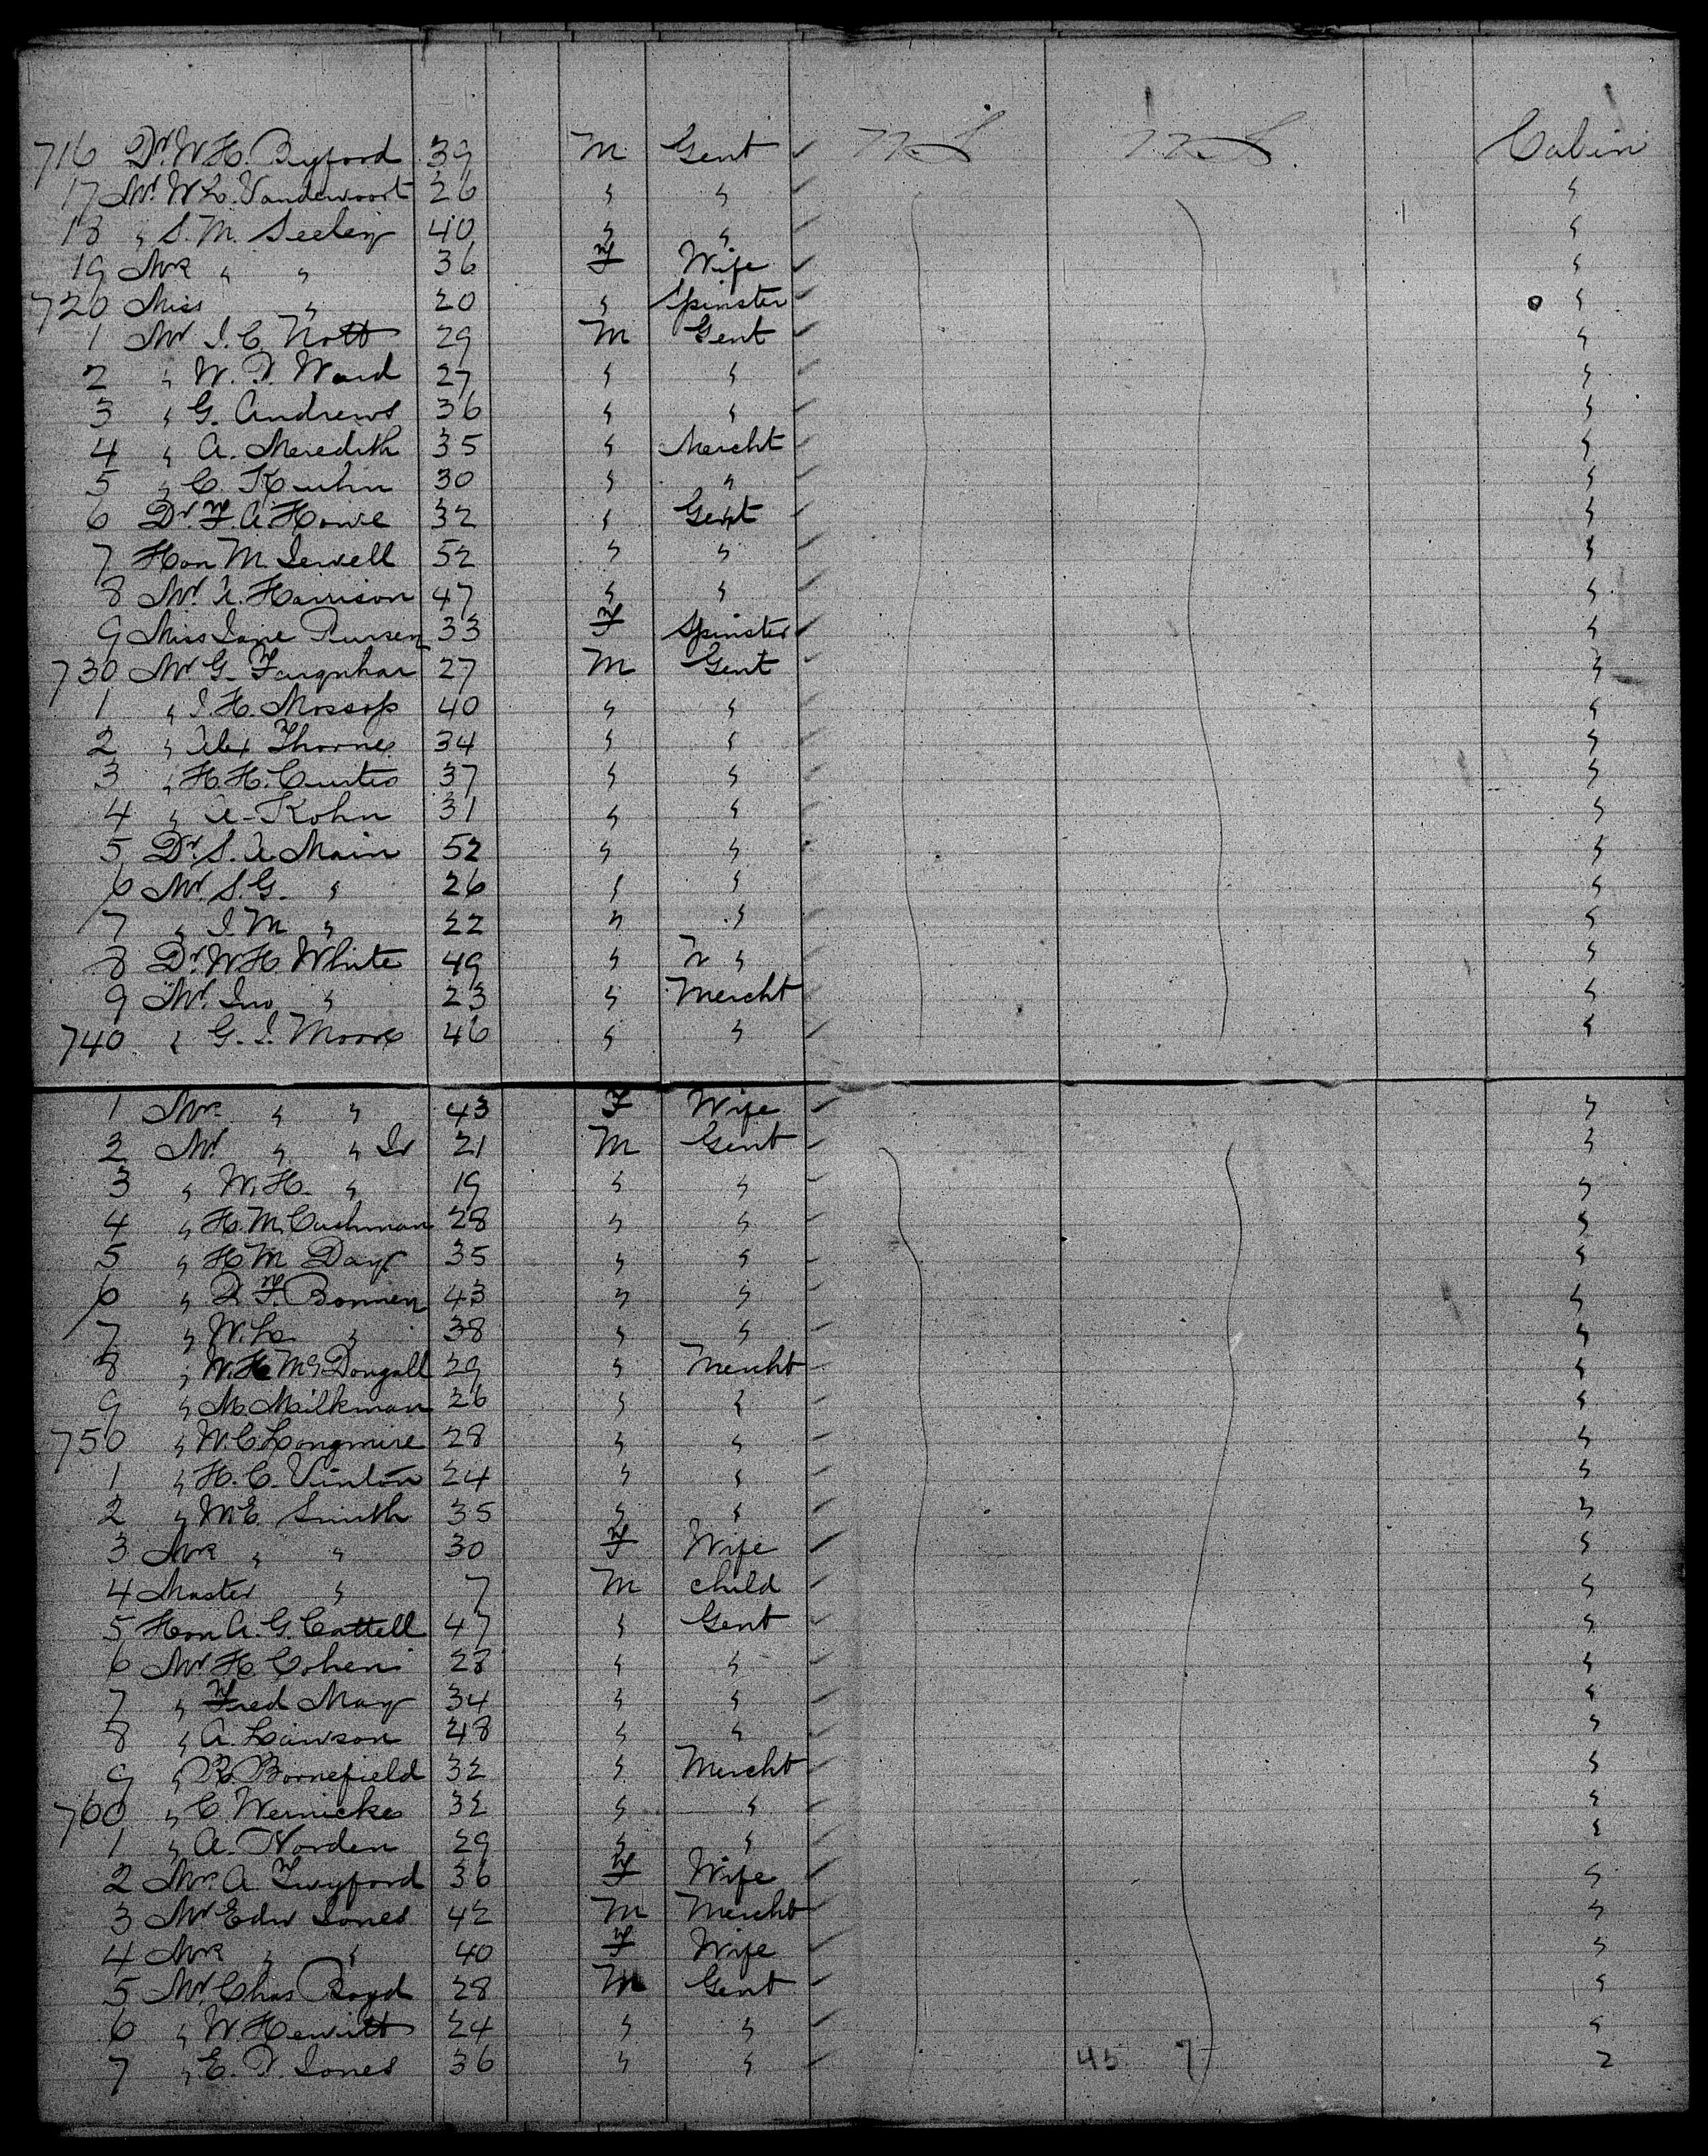 716 Dr. W. H. Byford 39 M Gent U.S. U.S. Cabin
17 Mr. W. L. Vandervoort 26 " " "
18 " S. M. Seeley 40 " " "
19 Mrs " " 36 F Wife "
720 Miss " 20 " Spinster "
1 Mr J. C. Nott 29 M Gent "
2 " W. P. Ward 27 " " "
3 " G. Andrews 36 " " "
4 " A. Meredith 35 " Mercht "
5 " C. Kuhn 30 " " "
6 Dr. F. A. Howe 32 " Gent "
7 Hon M. Jewell 52 " " "
8 Mr. A. Harrison 47 " " "
9 Miss Jane 33 F Spinster "
730 Mr G. Farquhar 27 M Gent "
1 " J. H. Mossop 40 " " "
2 " Alex Thorne 34 " " "
3 " H. H. Curtis 37 " " "
4 " A. Kohn 31 " " "
5 Dr. S. A. Main 52 " " "
6 Mr. S. G. " 26 " " "
7 " J. M " 22 " " "
8 Dr. W H White 49 " " "
9 Mr. Jno " 23 " Mercht "
740 " G. J. Moore 46 " " "
1 Mrs " " 43 F Wife "
2 Mr. " " Jr 21 M Gent "
3 " W. H. " 19 " " "
4 " H. M. Cushman 28 " " "
5 " H M Day 35 " " "
6 " F. Bonner 43 " " "
7 " W. L. " 38 " " "
8 " W. H. McDougall 29 " Mercht "
9 " M. Milkman 26 " " "
750 " W. C. Longmire 28 " " "
1 " H. C. Vinton 24 " " "
2 " M. E. Smith 35 " " "
3 Mrs " " 30 F Wife "
4 Master " 7 M child "
5 Hon A. G. Cattell 47 " Gent "
6 Mr H. Cohen 28 " " "
7 " Fred May 34 " " "
8 " A. Lawson 48 " " "
9 " R. Bornefield 32 " Mercht "
760 " C. Wernicke 32 " " "
1 " A. Norden 29 " " "
2 Mrs. A Twyford 36 F Wife "
3 Mr Edw Jones 42 M Mercht "
4 Mrs " " 40 F Wife "
5 Mr Chas Boyd 28 M Gent "
6 " W Hewitt 24 " " "
7 " E. P. Jones 36 " " 45 7 "